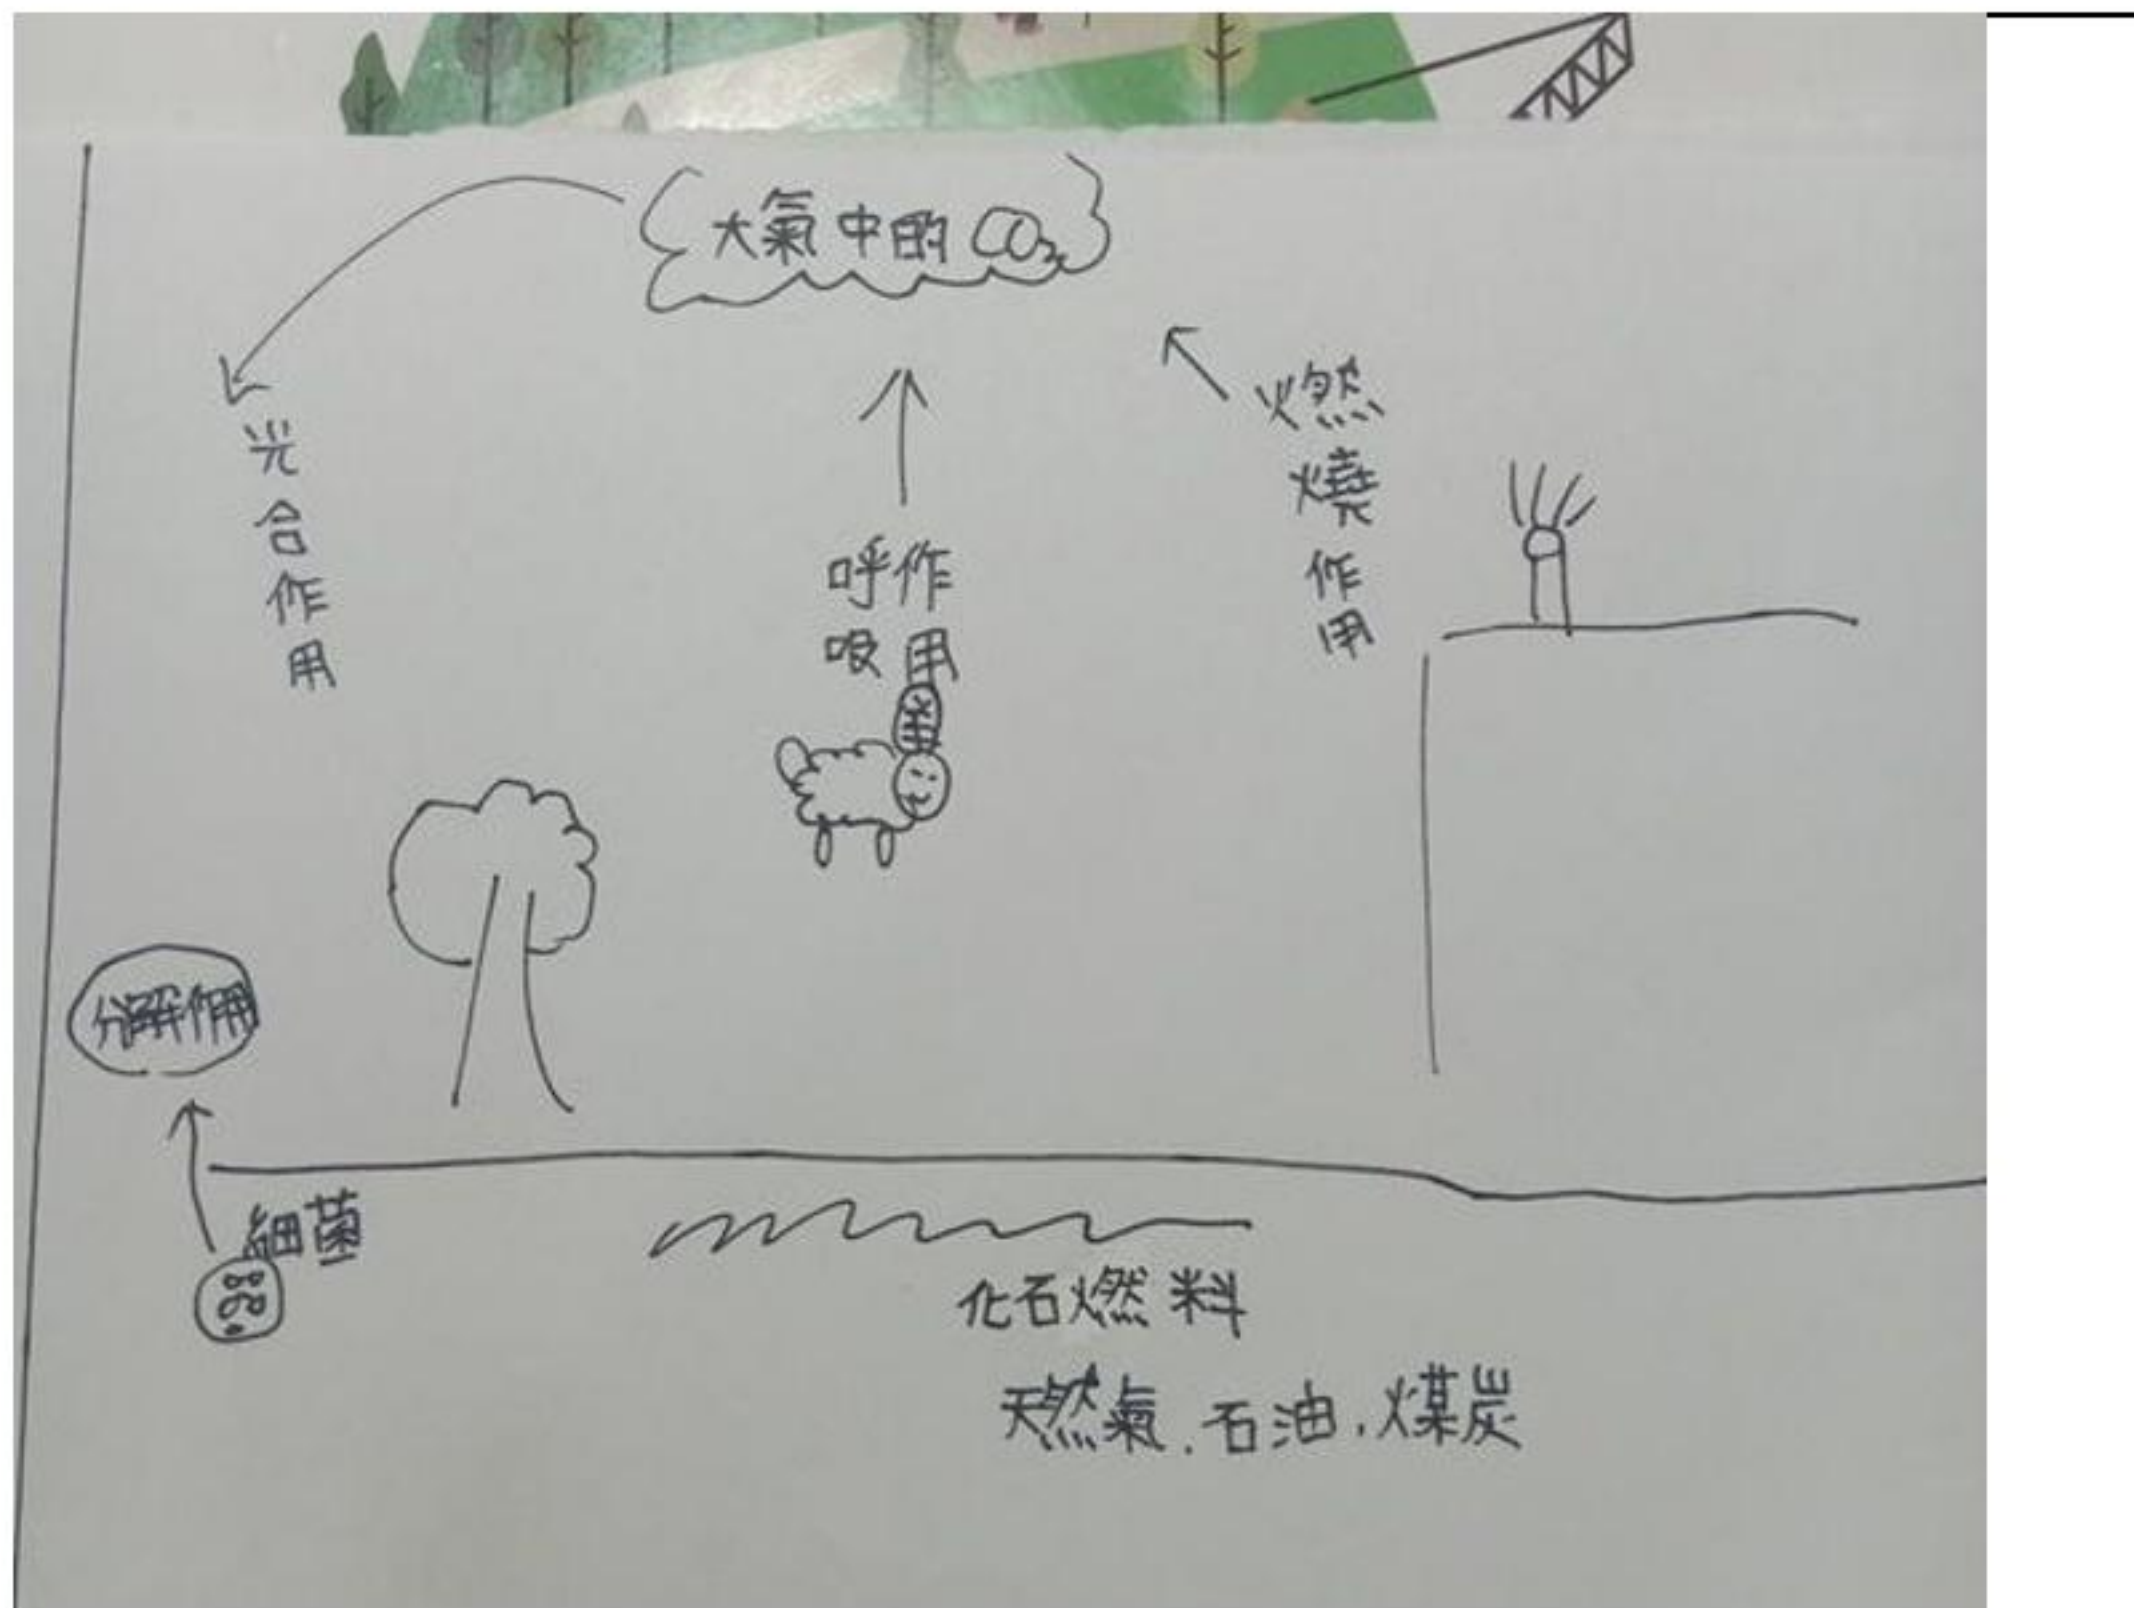 大氣中的CO₂
光合作用
呼吸作用
燃燒作用
分解作用
細菌
化石燃料
天然氣.石油.煤炭